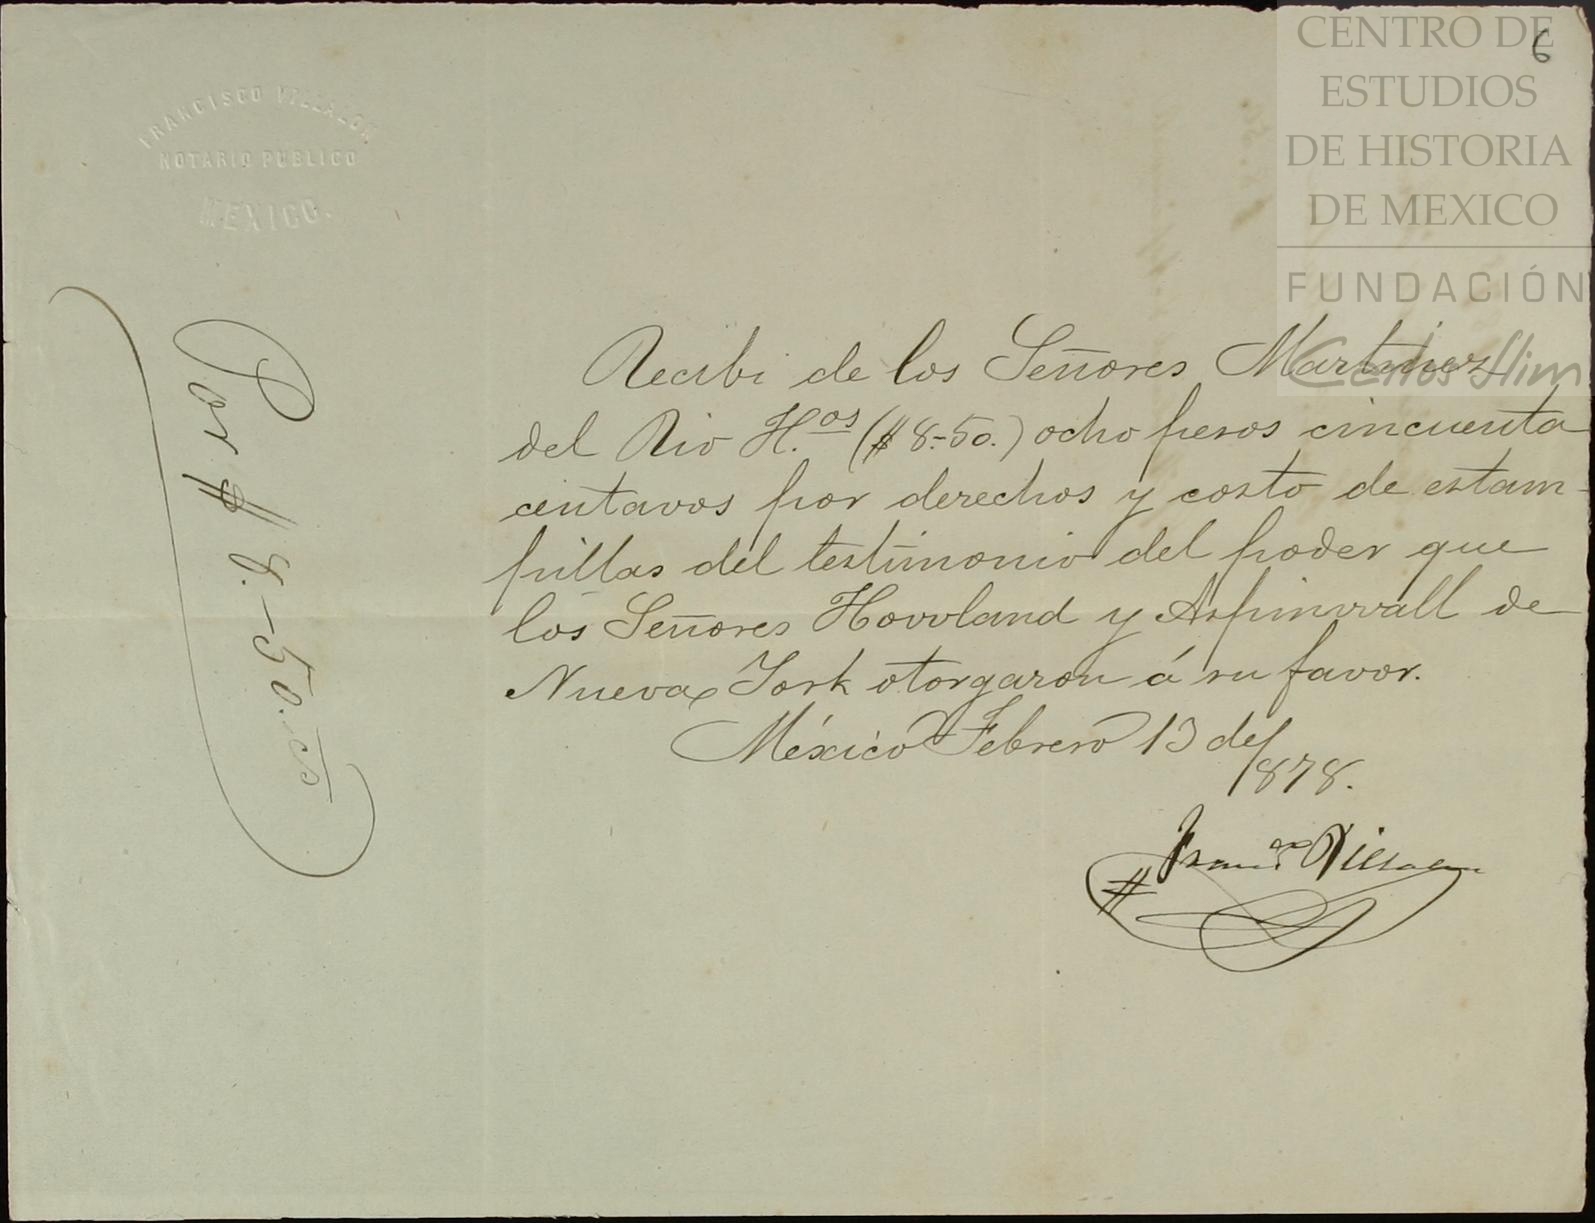 FRANCISCO VILLALON
NOTARIO PUBLICO
MEXICO.
6
CENTRO DE
ESTUDIOS
DE HISTORIA
DE MEXICO
FUNDACIÓN
Carlos Slim
Por $ 8.-50. cs
Recibi de los Señores Martinez
del Rio H.os ($8.-50.) ocho pesos cincuenta
centavos por derechos y costo de estam-
pillas del testimonio del poder que
los Señores Howland y Aspinwall de
Nueva York otorgaron á su favor.
México Febrero 13 de
1878.
Franco Villalon